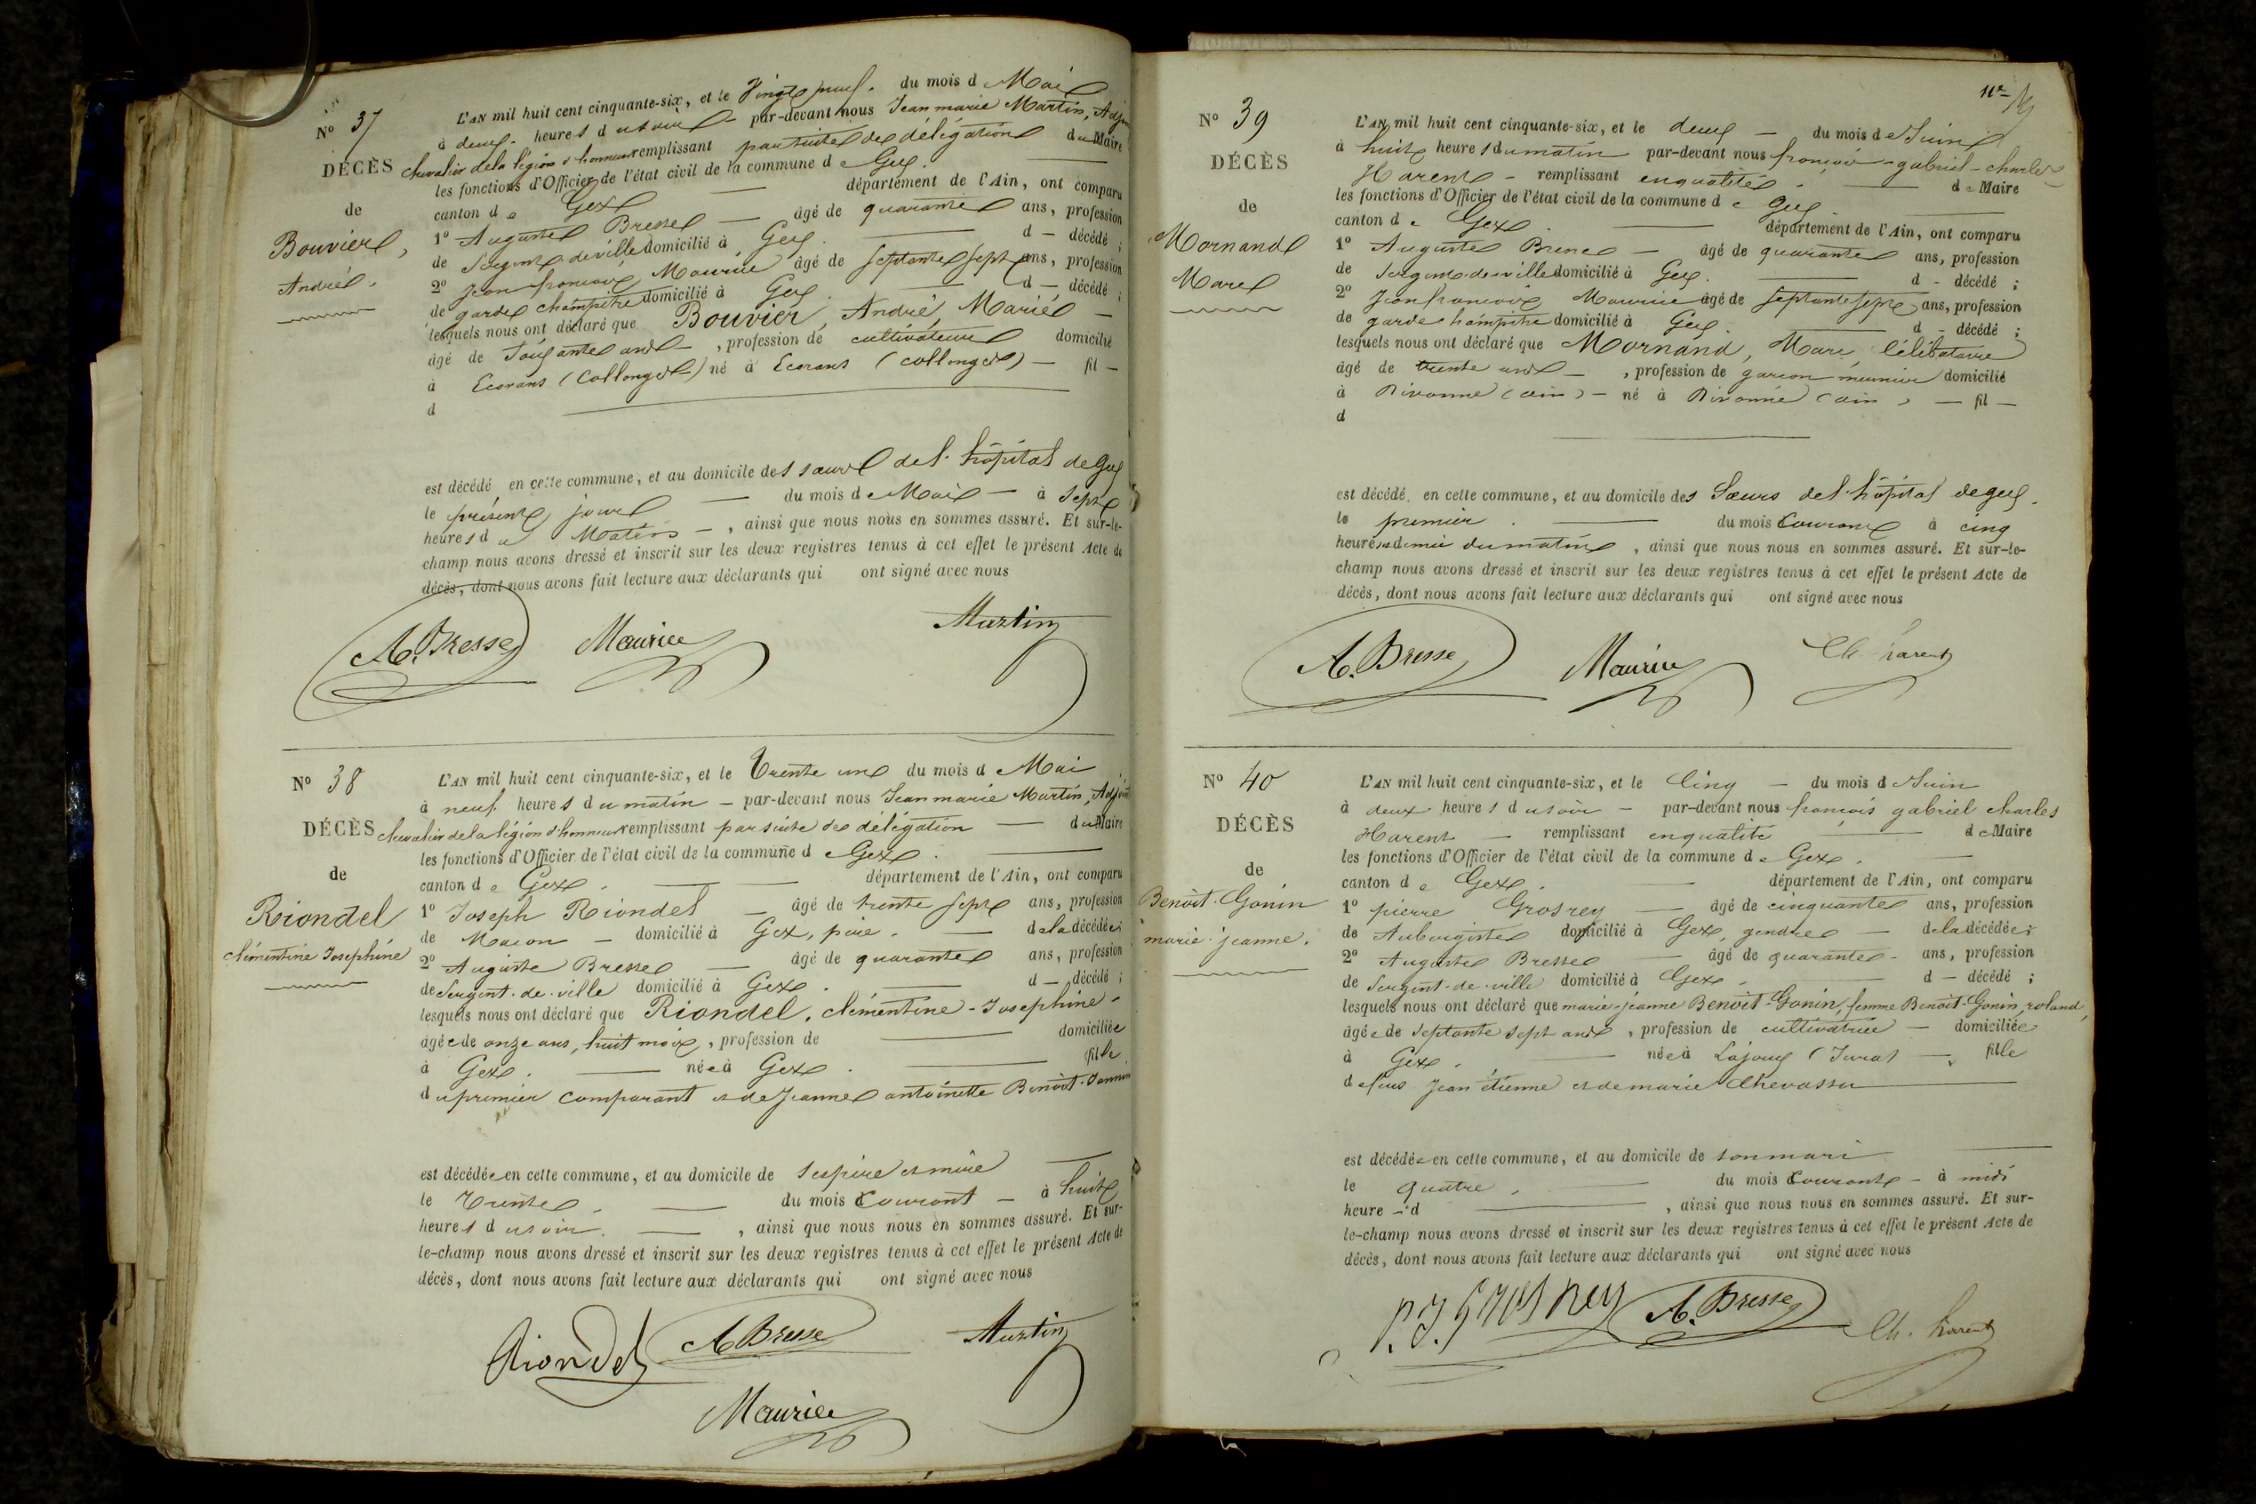 N° 37
DÉCÈS
de
Bouvier,
André.
L'AN mil huit cent cinquante-six, et le Vingt neuf. du mois d e Mai
à deux heures du soir par-devant nous Jean marie Martin, Adjoint
chevalier de la légion d'honneur remplissant par suite de délégation du Maire
les fonctions d'Officier de l'état civil de la commune d e Gex.
canton d e Gex département de l'Ain, ont comparu
1° Auguste Bresse — âgé de quarante ans, profession
de Sergent de ville domicilié à Gex. d — décédé ;
2° Jean françois Maurice âgé de septante sept ans, profession
de garde champêtre domicilié à Gex. d — décédé ;
lesquels nous ont déclaré que Bouvier, André, Marié —
âgé de Soixante ans — , profession de cultivateur domicilié
à Ecorans (Collonges) né à Ecorans (Collonges) — fil —
d
est décédé en cette commune, et au domicile des sœurs de l'hôpital de Gex
le présent jour — du mois d e Mai — à Sept
heures d u Matin — , ainsi que nous nous en sommes assuré. Et sur-le-
champ nous avons dressé et inscrit sur les deux registres tenus à cet effet le présent Acte de
décès, dont nous avons fait lecture aux déclarants qui ont signé avec nous
A. Bresse Maurice Martin
N° 38
DÉCÈS
de
Riondel
clémentine Josephine
L'AN mil huit cent cinquante-six, et le Trente un du mois d e Mai
à neuf heures du matin — par-devant nous Jean marie Martin, Adjoint
chevalier de la légion d'honneur remplissant par suite de délégation — du Maire
les fonctions d'Officier de l'état civil de la commune d e Gex.
canton d e Gex. département de l'Ain, ont comparu
1° Joseph Riondel — âgé de trente sept ans, profession
de Maçon — domicilié à Gex, père. — de la décédée ;
2° Auguste Bresse — âgé de quarante ans, profession
de Sergent-de-ville domicilié à Gex. d — décédé ;
lesquels nous ont déclaré que Riondel, clémentine-Josephine-
âgée de onze ans, huit mois, profession de domiciliée
à Gex. — née à Gex. fille
d u premier comparant et de Jeanne antoinette Benoit-Jannin
est décédée en cette commune, et au domicile de ses père et mère
le Trente. — du mois Courant — à huit
heures d u soir. — , ainsi que nous nous en sommes assuré. Et sur-
le-champ nous avons dressé et inscrit sur les deux registres tenus à cet effet le présent Acte de
décès, dont nous avons fait lecture aux déclarants qui ont signé avec nous
Riondel A Bresse Martin
Maurice
N° 39
DÉCÈS
de
Mornand
Marc
L'AN mil huit cent cinquante-six, et le deux — du mois de Juin
à huit heures du matin par-devant nous françois-gabriel-charles
Harent — remplissant en qualité. — d e Maire
les fonctions d'Officier de l'état civil de la commune d e Gex.
canton d e Gex. département de l'Ain, ont comparu
1° Auguste Bresse — âgé de quarante ans, profession
de Sergent-de-ville domicilié à Gex. d - décédé ;
2° Jean françois Maurice âgé de septante sept ans, profession
de garde champêtre domicilié à Gex. d - décédé ;
lesquels nous ont déclaré que Mornand, Marc, Célibataire
âgé de trente ans — , profession de garçon meunier domicilié
à Divonne (ain) — né à Divonne (ain) — fil —
d
est décédé en cette commune, et au domicile des Sœurs de l'hôpital de gex.
le premier. du mois Courant à cinq
heures et demie du matin , ainsi que nous nous en sommes assuré. Et sur-le-
champ nous avons dressé et inscrit sur les deux registres tenus à cet effet le présent Acte de
décès, dont nous avons fait lecture aux déclarants qui ont signé avec nous
A. Bresse Maurice Ch. harent
N° 40
DÉCÈS
de
Benoit-Gonin
marie-jeanne.
L'AN mil huit cent cinquante-six, et le Cinq — du mois d e Juin
à deux heures du soir — par-devant nous françois gabriel charles
Harent — remplissant en qualité d e Maire
les fonctions d'Officier de l'état civil de la commune d e Gex.
canton d e Gex. département de l'Ain, ont comparu
1° pierre Grosrey — âgé de cinquante ans, profession
de Aubergiste domicilié à Gex, gendre — de la décédée ;
2° Auguste Bresse — âgé de quarante- ans, profession
de Sergent-de-ville domicilié à Gex. d — décédé ;
lesquels nous ont déclaré que marie-jeanne Benoit-Gonin, femme Benoit-Gonin, roland,
âgée de septante sept ans , profession de cultivatrice — domiciliée
à Gex. — née à Lajoux (Jura) —, fille
d e feus Jean étienne et de marie Chevassu
est décédée en cette commune, et au domicile de son mari
le quatre. — du mois Courant - à midi
heure — d , ainsi que nous nous en sommes assuré. Et sur-
le-champ nous avons dressé et inscrit sur les deux registres tenus à cet effet le présent Acte de
décès, dont nous avons fait lecture aux déclarants qui ont signé avec nous
P. J. Grosrey A. Bresse Ch. harent